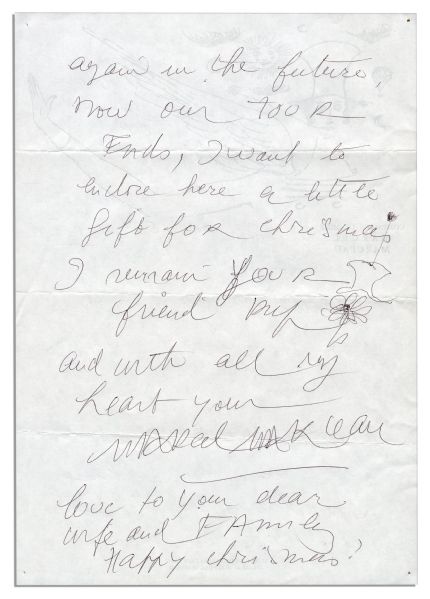 again in the future,
now our TOUR
Ends, I want to
enclose here a little
gift for chrisma
I remain YOUR
friend Bip
and with all my
heart your
Marcel Marceau
love to your dear
wife and FAmily
Happy chrismas!